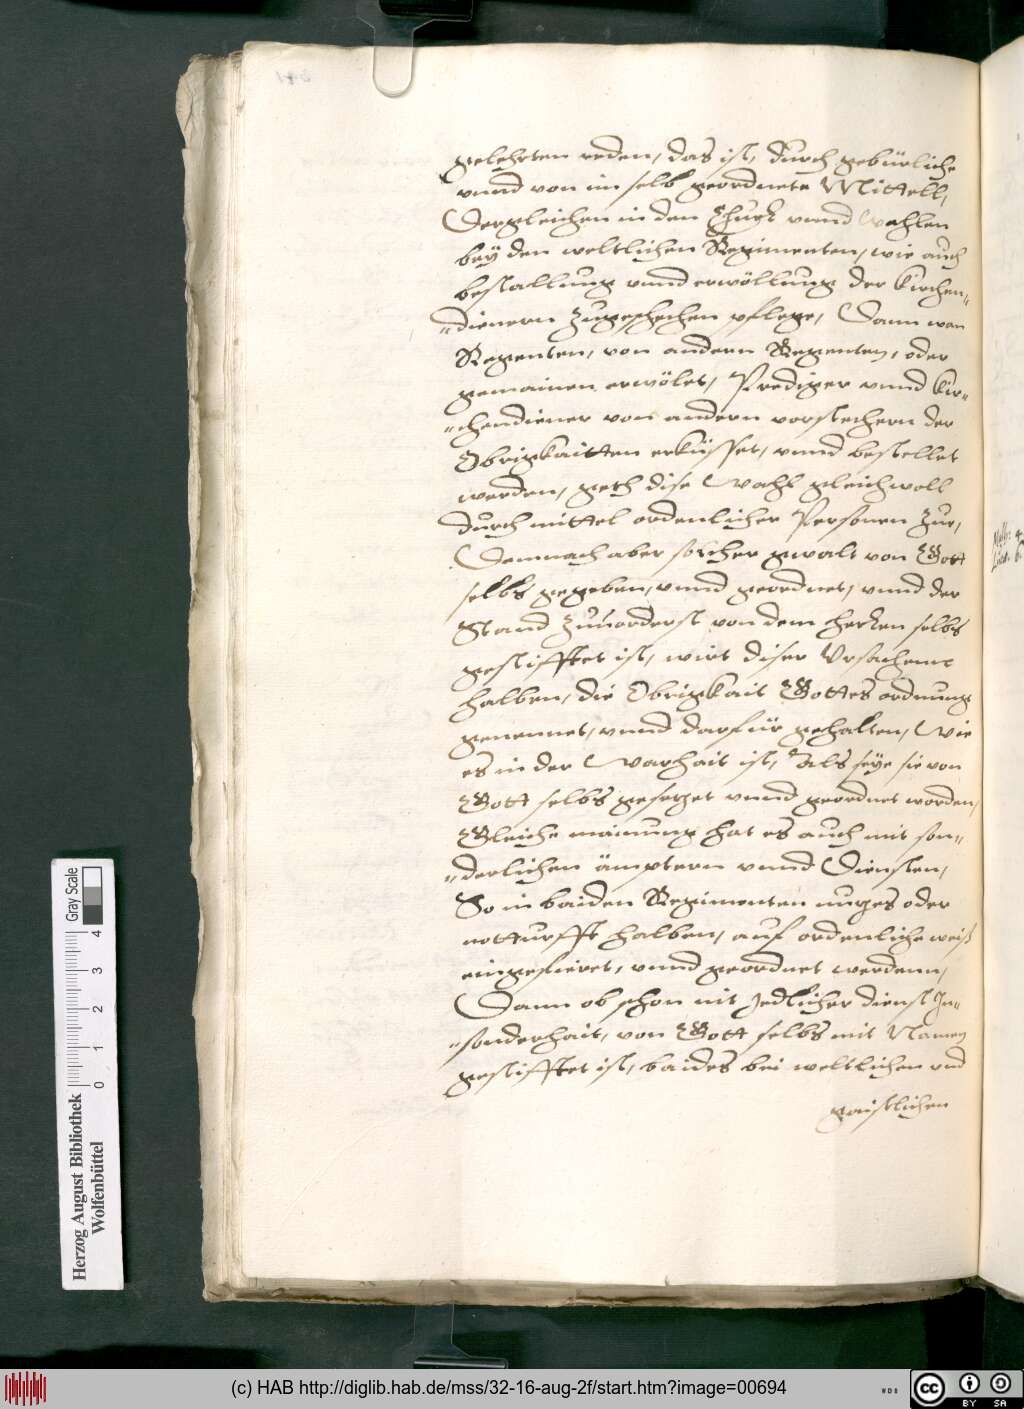 gelehrten reden, das ist, durch gebürliche
vnnd von im selb geordnete Mittell,
Dergleichen in den vnnd Wahlen
bey den weltlichen Regimenten, wie auch
bestallung vnnd erwöllung der Kirchen-
-dienern zugeschechen pflege, Dann wan
Regenten, von andern Regenten, oder
gemainen erwölet, Prediger vnnd Kir-
-chendiener von andern vorstechern der
Obrigkaitten erküsset, vnnd bestellet
werden, geth dise Wahl gleichwoll
durch mittel ordenlicher Personen zue,
Demnach aber solcher gwalt von Gott
selbs gegeben, vnnd geordnet, vnnd der
Stand zuuorderst von dem herren selbs
gestifftet ist, wirt diser Vrsachenn
halben, die Obrigkait Gottes ordnung
genennet, vnnd darfür gehalten, Wie
es in der Warhait ist, Als seye sie von
Gott selbs gesetzet vnnd geordnet worden,
Gleiche mainung hat es auch mit son-
-derlichen ämptern vnnd Diensten,
So in baiden Regimenten nutzes oder
notturfft halben, auf ordenliche weiß
eingefieret, vnnd geordnet werdenn,
Dann ob schon nit Jedlicher dienst In-
-sonderhait, von Gott selbs mit Namen
gestifftet ist, baides bei weltlichen vnd
gaistlichen
Herzog August Bibliothek
Wolfenbüttel
Gray Scale
0 1 2 3 4
(c) HAB http://diglib.hab.de/mss/32-16-aug-2f/start.htm?image=00694
WDB
cc BY SA